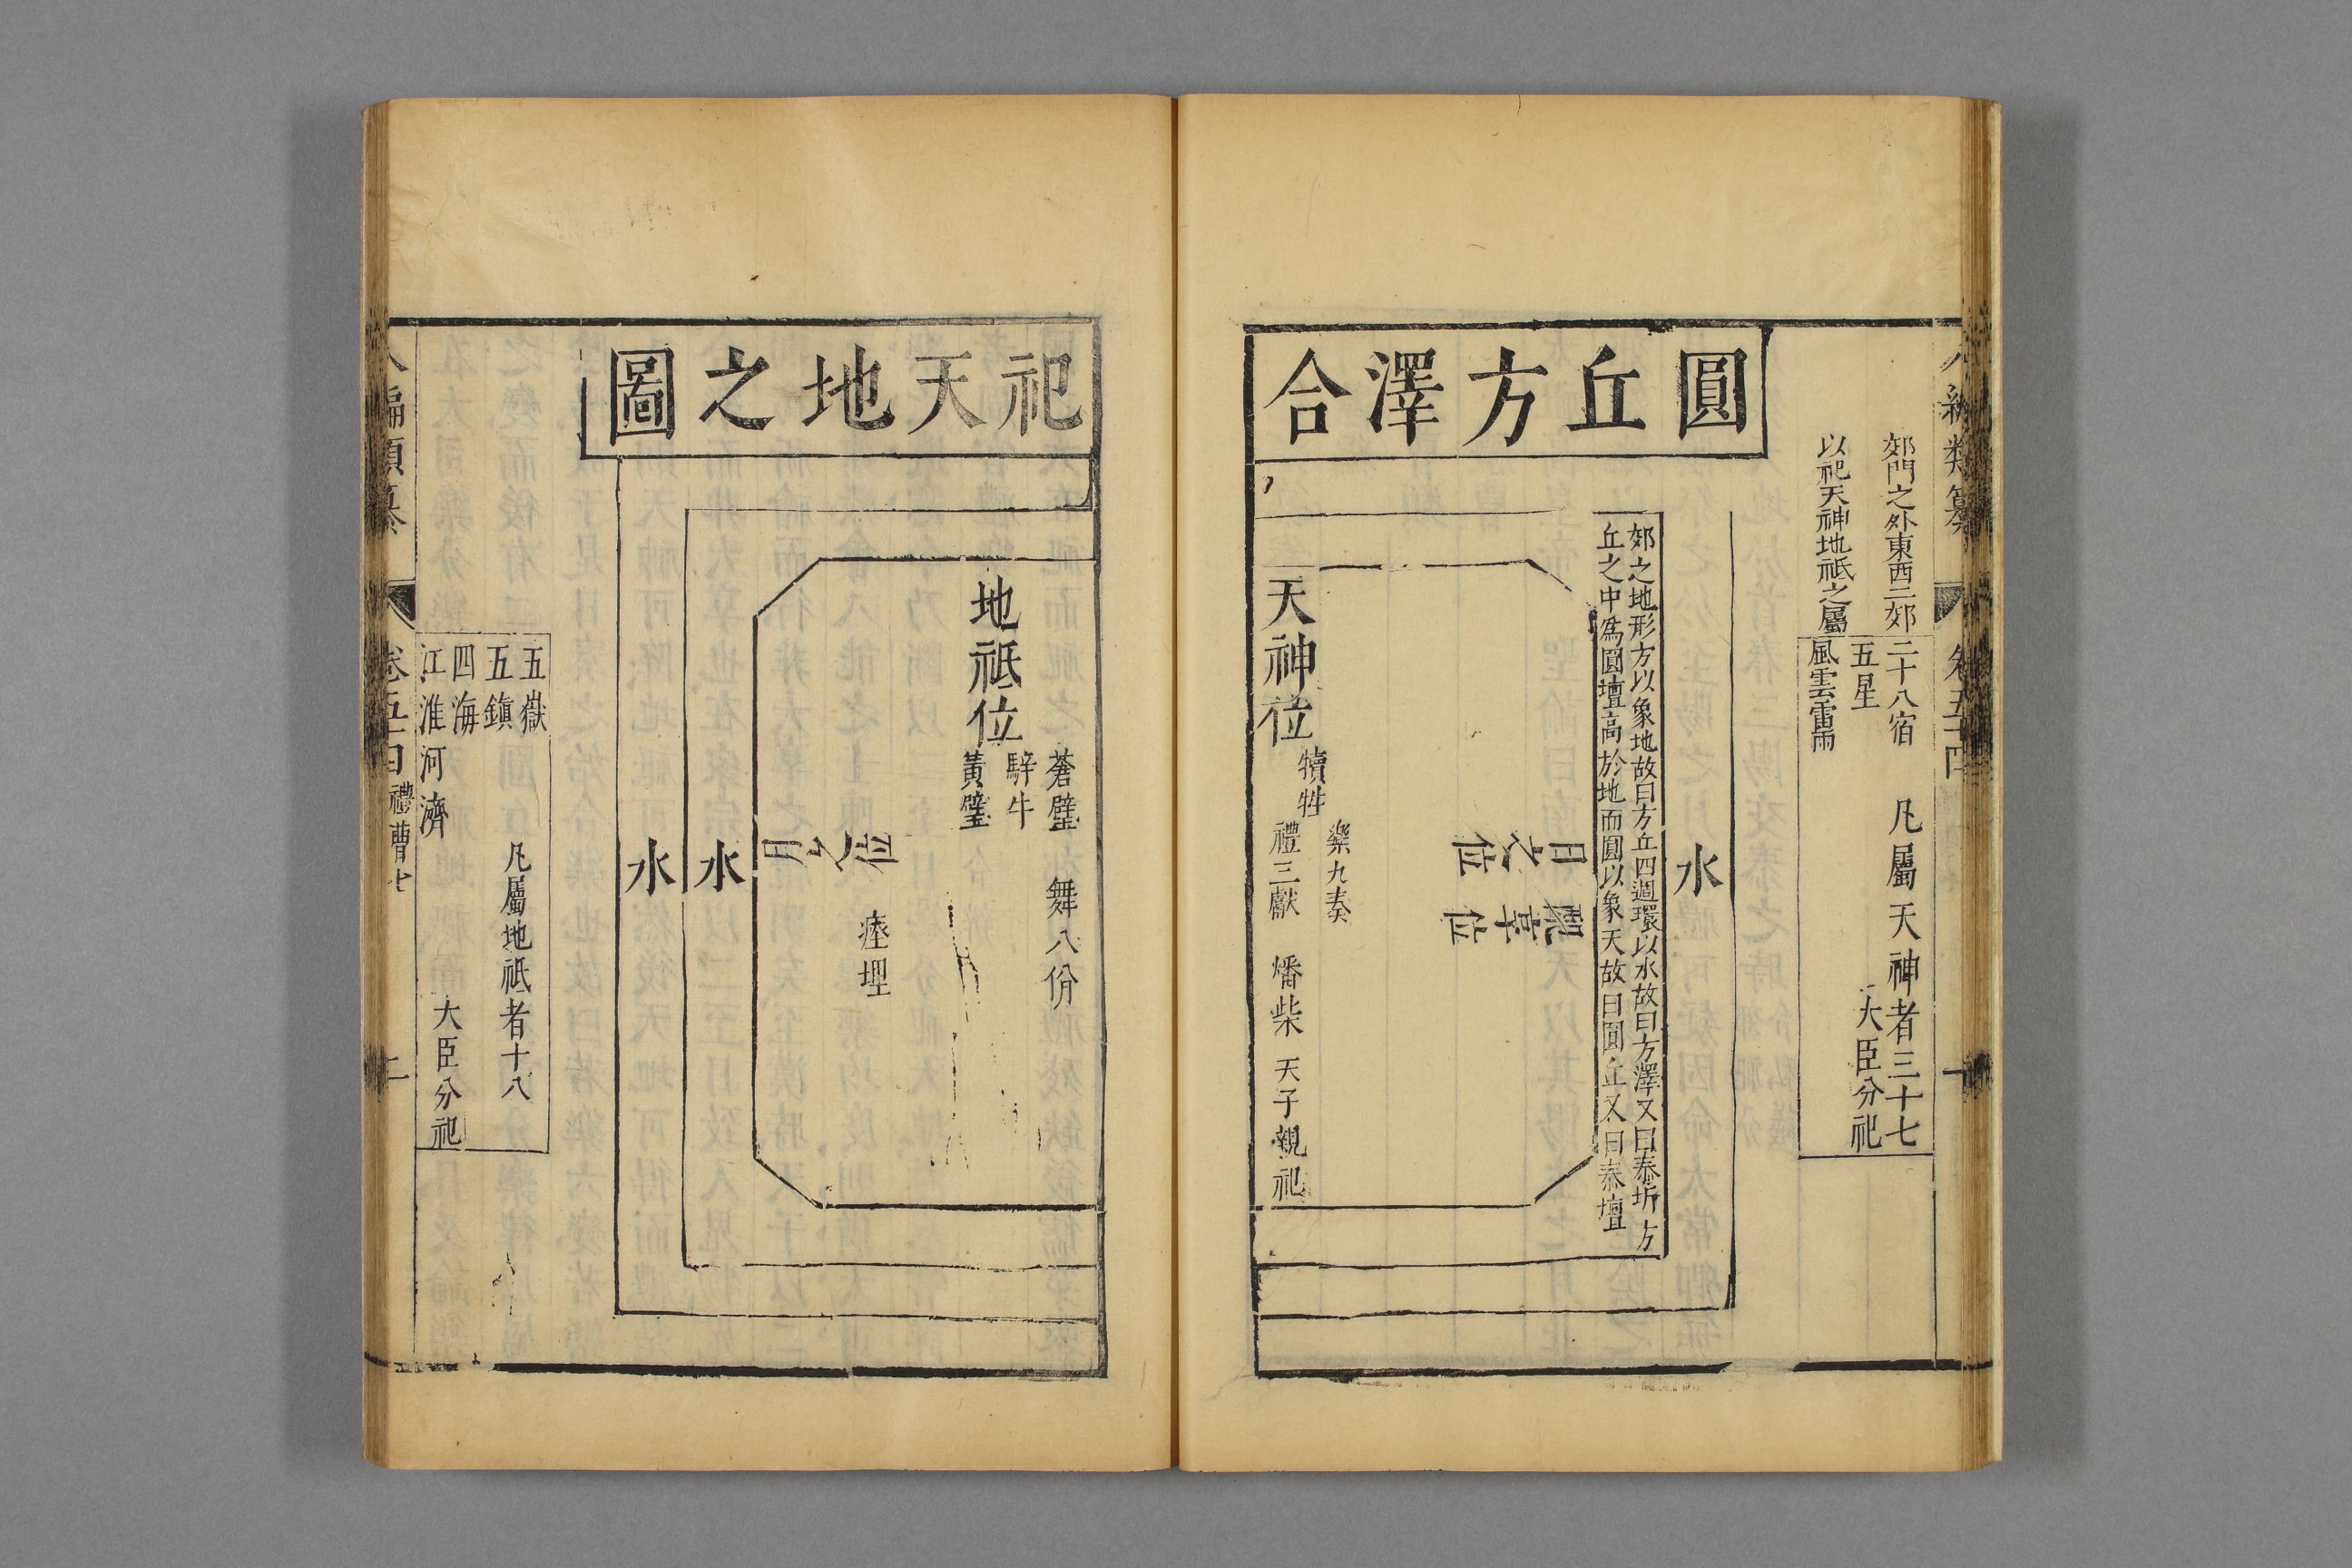 八編類纂 卷五十四
郊門之外東西二郊
以祀天神地祇之屬
二十八宿
五星
風雲雷雨
凡屬天神者三十七
大臣分祀
圓丘方澤合
水
郊之地形方以象地故曰方丘四週環以水故曰方澤又曰泰圻方
丘之中爲圓壇高於地而圓以象天故曰圓丘又曰泰壇
日之位
天神位
犢牲
樂九奏
禮三獻
燔柴
天子親祀
祀天地之圖
地祇位
蒼璧
騂牛
黃璧
舞八佾
月之位
瘞埋
水
水
五嶽
五鎮
四海
江淮河濟
凡屬地祇者十八
大臣分祀
八編類纂 卷五十四 禮曹七